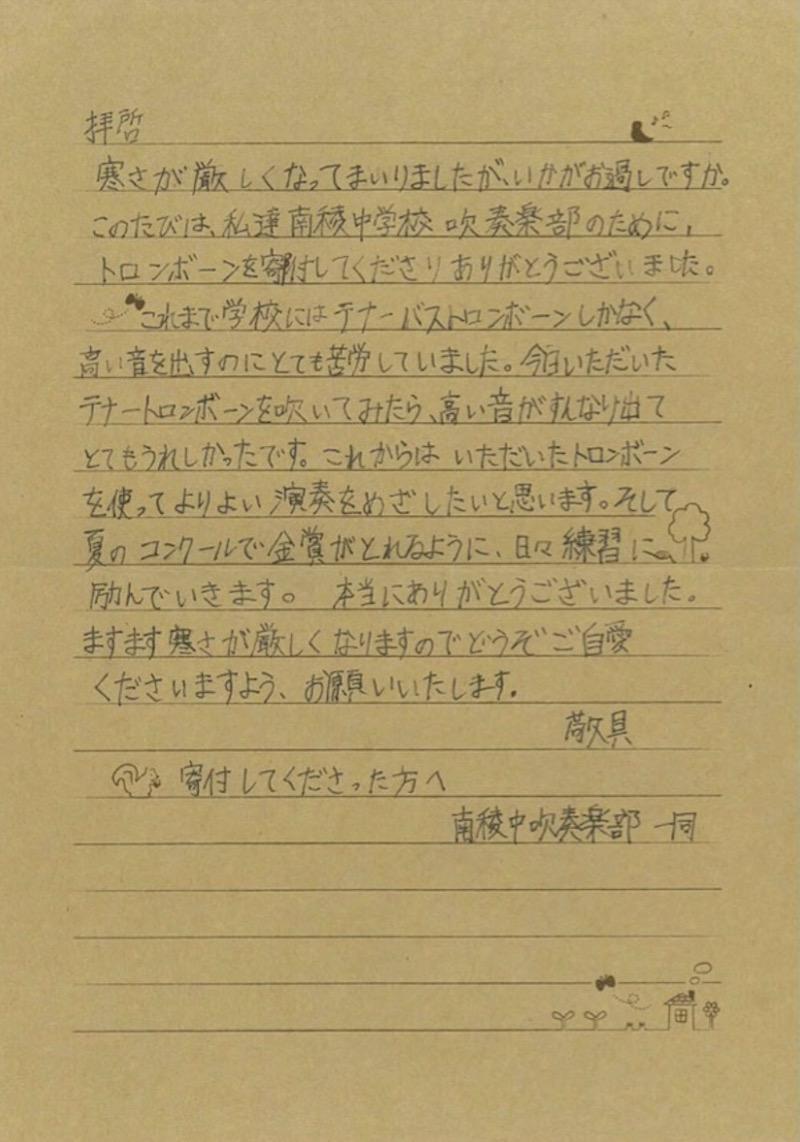 拝啓
寒さが厳しくなってまいりましたが、いかがお過しですか。
このたびは、私達南稜中学校 吹奏楽部のために、
トロンボーンを寄付してくださりありがとうございました。
これまで学校にはテナーバストロンボーンしかなく、
高い音を出すのにとても苦労していました。今日いただいた
テナートロンボーンを吹いてみたら、高い音がすんなり出て
とてもうれしかったです。これからは いただいたトロンボーン
を使ってよりよい演奏をめざしたいと思います。そして
夏のコンクールで金賞がとれるように、日々練習に
励んでいきます。 本当にありがとうございました。
ますます寒さが厳しくなりますのでどうぞご自愛
くださいますよう、お願いいたします。
敬具
寄付してくださった方へ
南稜中吹奏楽部 一同